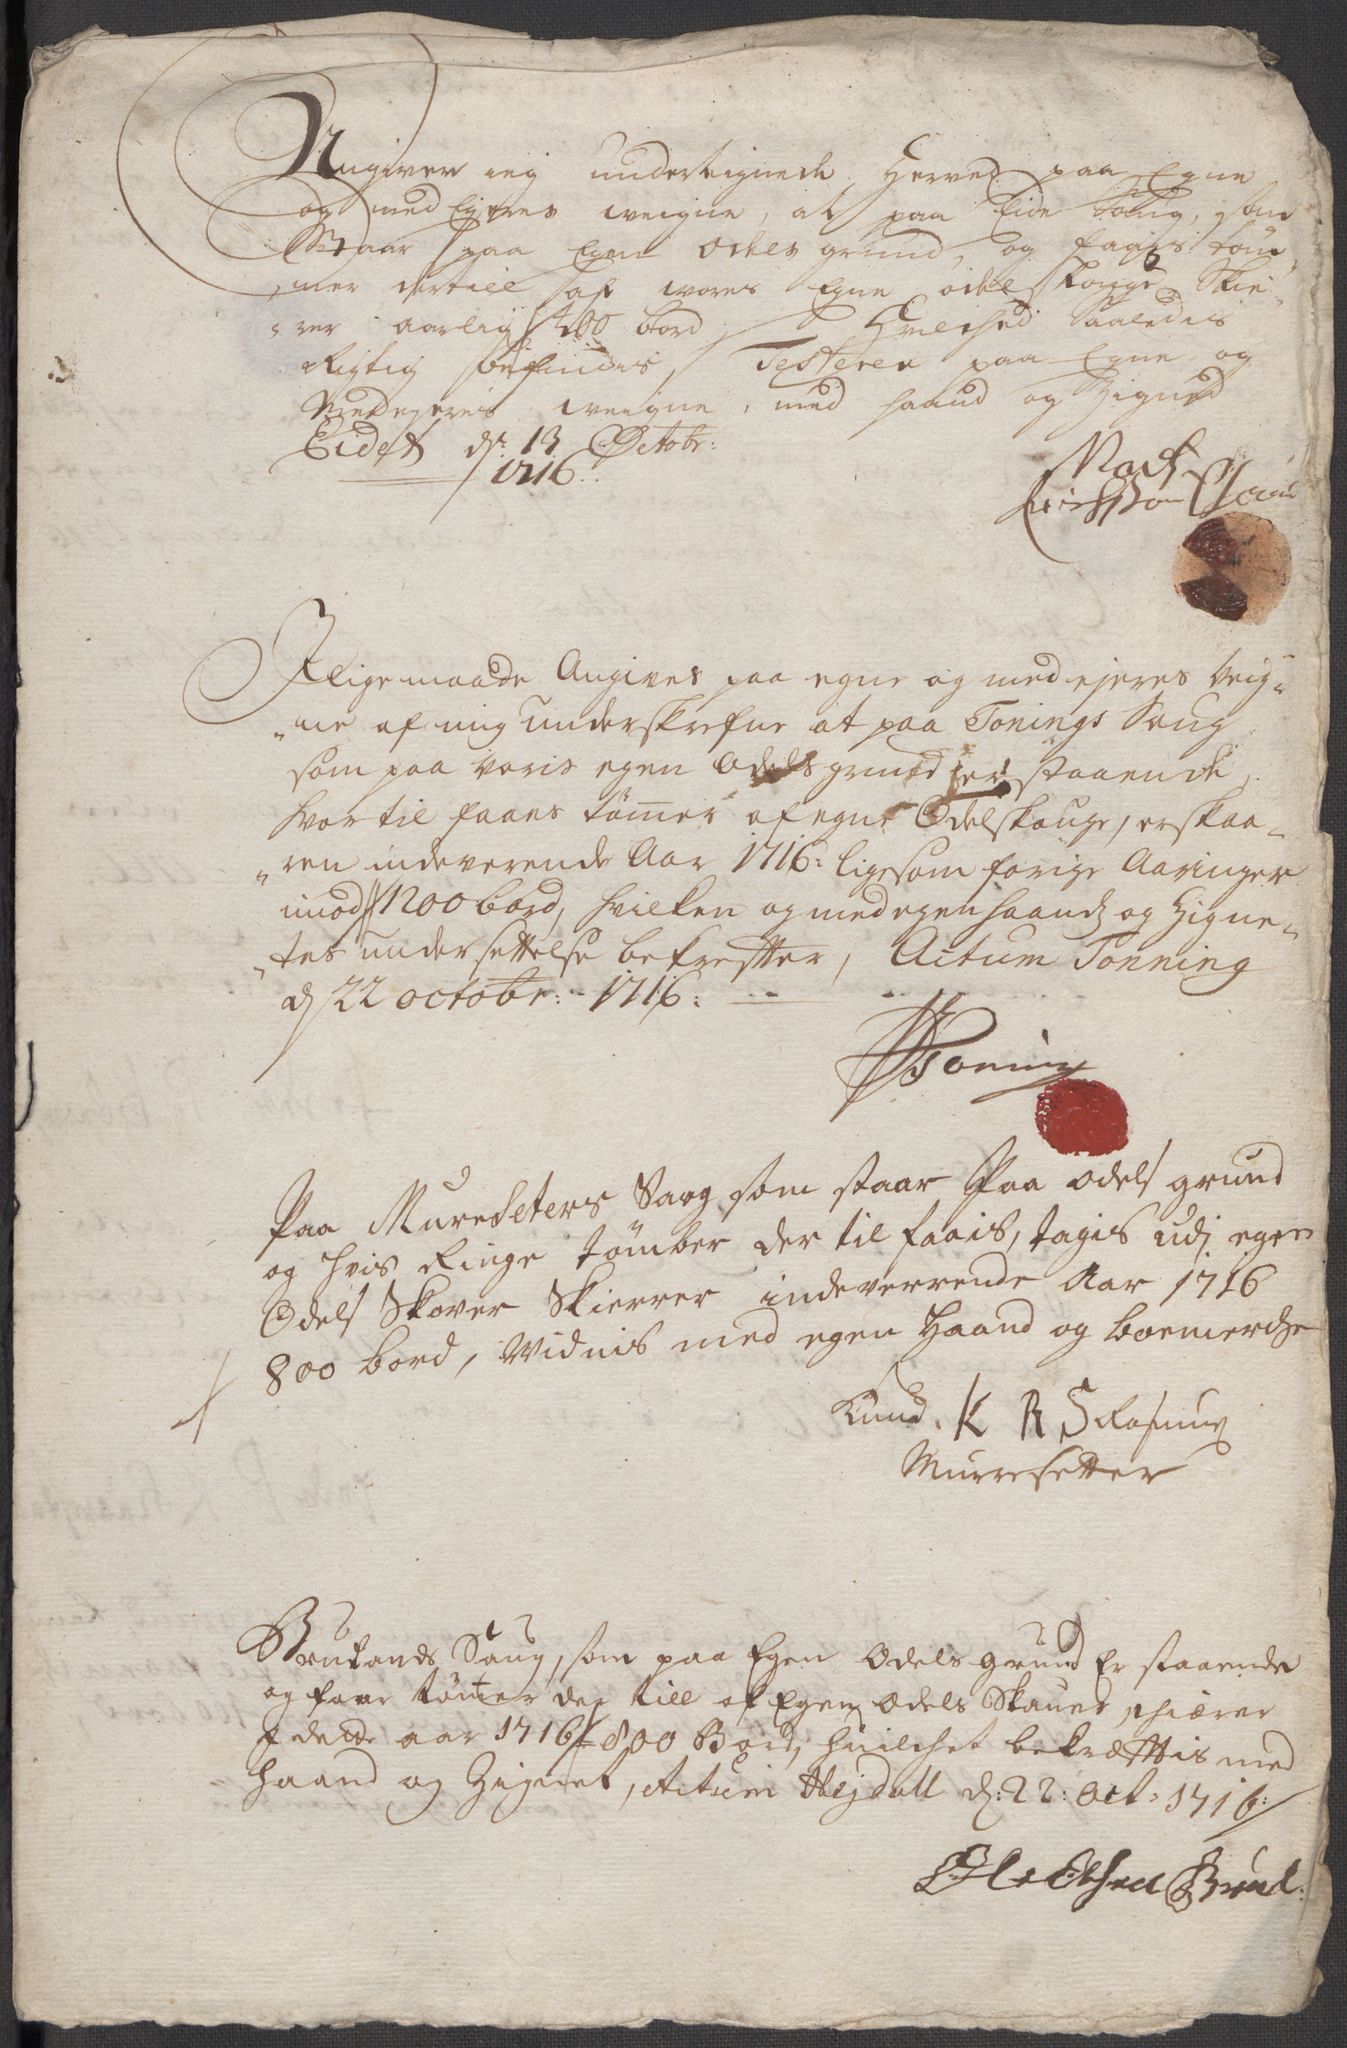 Angiver ieg undertegnede Herved paa Egne
og med Ejeres weigne, at paa Eide Saug, som
Staar paa Egen Odels grund, og faaes töm-
mer dertill af wores Egne odel skouge Skie-
rer aarlig 400 bord, Hvilched Saaledis
Rigtig befindis, Testerer paa Egne og
Medejeres weigne, med haand og Zignet
Eidet dn: 13 Octobr:
1716.
Mads

J lige maade Angives paa egne og med ejeres veig-
ne af mig underskrefne at paa Tonings Saug
som paa voris egen Odels grund er staaende,
hvor til faaes tömer af egne Odelskouge, er skaa-
ren indeverende Aar 1716: ligesom forige Aaringer
imod 1200 bord, hvilken og med egen haand og Zigne-
tes undersettelse bekrefter, Actum Tonning
d 22 octobr: 1716:
Toning

Paa Mureseters Saug som staar Paa odels grund
og hvis Ringe tömber der til faais, tagis udj egen
Odels Skover Skierrer indeverrende Aar 1716
800 bord, Widnis med egen Haand og boemercke
Knud. K R S Rasmus
Murresetter

Saug, som paa Egen Odels grund Er staaende
og faar tömer der till af Egen odels Skauer, schiærer
J dette aar 1716 800 Bord, huilchet bekræfftis med
haand og Zignet, Actum Hejdall d: 22: Oct: 1716:
Ole Olsen